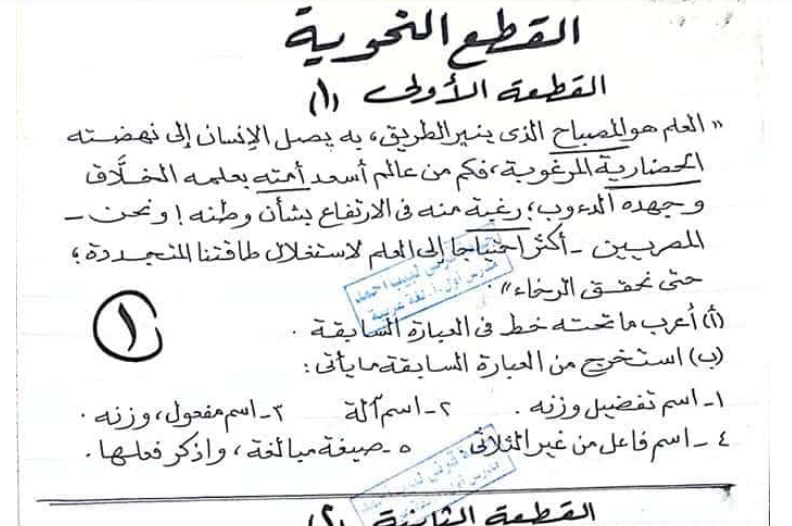 القطع النحوية
القطعة الأولى (١)
« العلم هو المصباح الذى ينير الطريق، به يصل الإنسان إلى نهضته
الحضارية المرغوبة، فكم من عالم أسعد أمته بعلمه الخلَّاق
وجهده الدءوب؛ رغبة منه فى الارتفاع بشأن وطنه! ونحن -
المصريين - أكثر احتياجا إلى العلم لاستغلال طاقتنا المتجددة؛
حتى نحقق الرخاء».
(أ) أعرب ما تحته خط فى العبارة السابقة.
(ب) استخرج من العبارة السابقة ما يأتى:
١- اسم تفضيل وزنه. ٢- اسم آلة ٣- اسم مفعول، وزنه.
٤- اسم فاعل من غير الثلاثى ٥- صيغة مبالغة، واذكر فعلها.
١
لبيب أحمد
مدرس أول أ. لغة عربية
القطعة الثانية (٢)